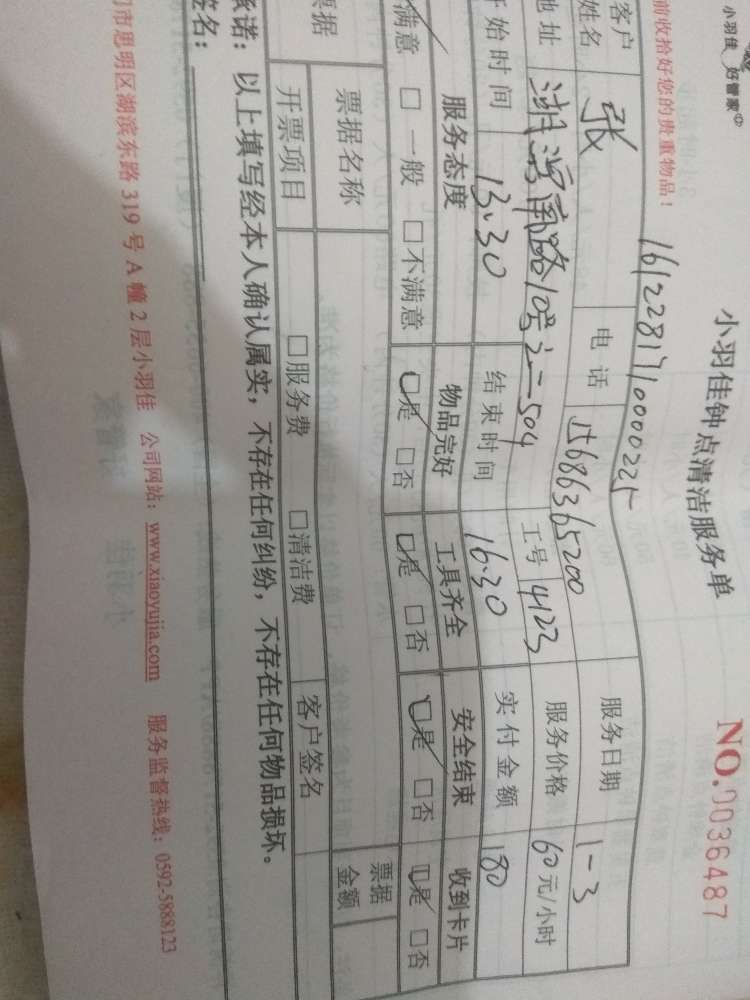 小羽佳 好管家
小羽佳钟点清洁服务单
NO.0036487
前收拾好您的贵重物品！
161228171000022
客户姓名 张 电话 服务日期 1-3
地址 湖滨南路 504 工号 4123 服务价格 60元/小时
开始时间 13.30 结束时间 16.30 实付金额 180
服务态度 物品完好 工具齐全 安全结束 收到卡片
满意 □一般 □不满意 □是 □否 □是 □否 □是 □否 □是 □否
票据 票据名称 票据金额
开票项目 □服务费 □清洁费 客户签名
承诺：以上填写经本人确认属实，不存在任何纠纷，不存在任何物品损坏。
签名：
门市思明区湖滨东路319号A幢2层小羽佳 公司网站：www.xiaoyujia.com 服务监督热线：0592-5888123